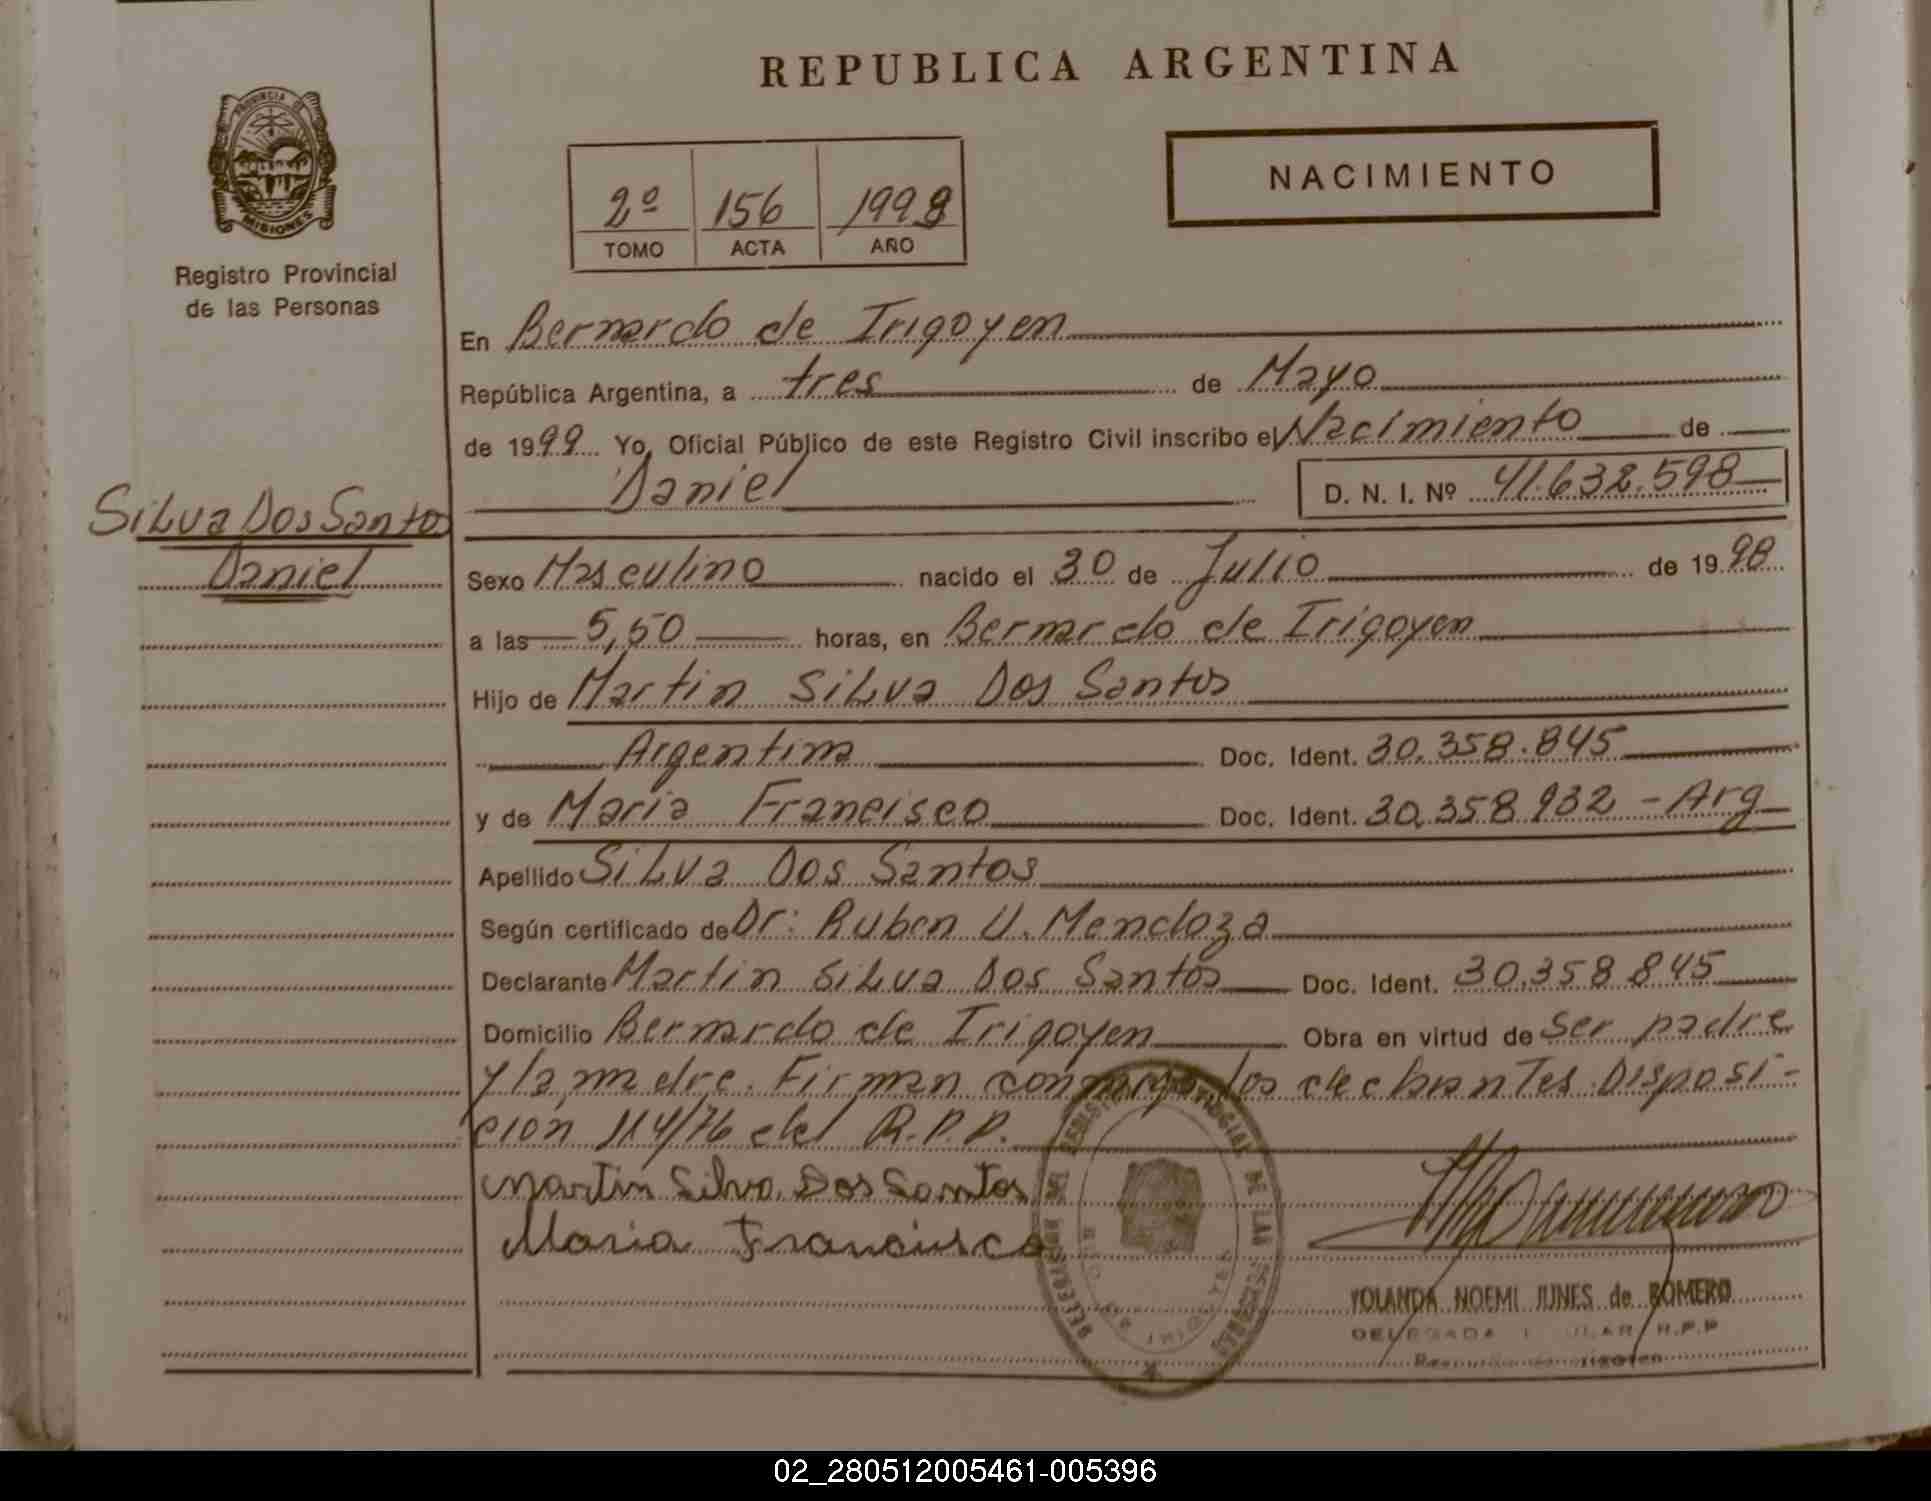 REPUBLICA ARGENTINA
PROVINCIA DE
MISIONES
Registro Provincial
de las Personas
2º 156 1998
TOMO ACTA AÑO
NACIMIENTO
En Bernardo de Irigoyen
República Argentina, a tres de Mayo
de 1999 Yo, Oficial Público de este Registro Civil inscribo el Nacimiento de
Daniel D. N. I. Nº 41.632.598
Silva Dos Santos
Daniel
Sexo Masculino nacido el 30 de Julio de 1998
a las 5,50 horas, en Bernardo de Irigoyen
Hijo de Martin Silva Dos Santos
Argentina Doc. Ident. 30.358.845
y de Maria Francisco Doc. Ident. 30.358.932 - Arg
Apellido Silva Dos Santos
Según certificado de Dr: Ruben U. Mendoza
Declarante Martin Silva Dos Santos Doc. Ident. 30.358.845
Domicilio Bernardo de Irigoyen Obra en virtud de ser padre
y la madre. Firman conmigo los declarantes Disposi-
ción 114/76 del R.P.P.
Martin Silva Dos Santos
Maria Francisco
YOLANDA NOEMI JUNES de ROMERO
DELEGADA R.P.P
02_280512005461-005396